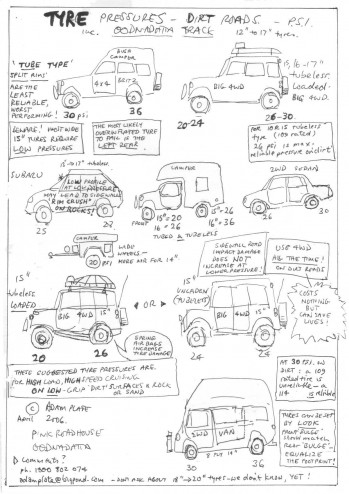 TYRE PRESSURES - DIRT ROADS - P.S.I.
inc. OODNADATTA TRACK 12" to 17" tyres.
'TUBE TYPE'
SPLIT RIMS
ARE THE
LEAST
RELIABLE,
WORST
PERFORMING!
BUSH
CAMPER
4x4 BRITZ
30 psi
36
15, 16-17"
tubeless.
Loaded-
Big 4WD.
BIG 4WD
20-24
26-30
BEWARE! MOST WIDE
15" TYRES REQUIRE
LOW PRESSURES
THE MOST LIKELY
OVERINFLATED TYRE
TO FAIL IS THE
LEFT REAR
FOR 10R15 TUBELESS
TYPE (109 rated)
26 PSI is max.
reliable pressure on dirt
15-17" tubeless
SUBARU
LOW PROFILE
AT LOW PRESSURE
MAY LEAD TO SIDEWALL
"RIM CRUSH"
ON ROCKS!
25
22
CAMPER
FRONT
15"=20
16"=26
15"=26
16"=36
TUBED & TUBELESS
2WD SEDAN
26
30
CAMPER
20
PSI
WIDE
WHEELS -
MORE AIR FOR 14"
SIDEWALL ROAD
IMPACT DAMAGE
DOES NOT
INCREASE AT
LOWER PRESSURE!
USE 4WD
ALL THE TIME!
ON DIRT ROADS
15"
tubeless
LOADED
BIG 4WD
20
26
SPRING
AIR BAGS
INCREASE
TYRE DAMAGE!
OR
15"
UNLADEN
(TUBELESS)
BIG 4WD 15"
24
24
COSTS
NOTHING
BUT
CAN SAVE
LIVES!
THESE SUGGESTED TYRE PRESSURES ARE
FOR HIGH LOAD, HIGH SPEED CRUISING
ON LOW-GRIP DIRT SURFACES & ROCK
OR SAND
AT 30 PSI, on
DIRT: a 109
rated tire is
unreliable - a
114 is reliable
© ADAM PLATE
April 2006.
PINK ROADHOUSE
OODNADATTA
Comments?
ph. 1800 802 074
2WD VAN
30
36
TYRES CAN BE SET
BY LOOK
FRONT 'BULGE'
MUST MATCH
REAR 'BULGE' -
EQUALIZE
THE FOOTPRINT!
we don't know, YET!